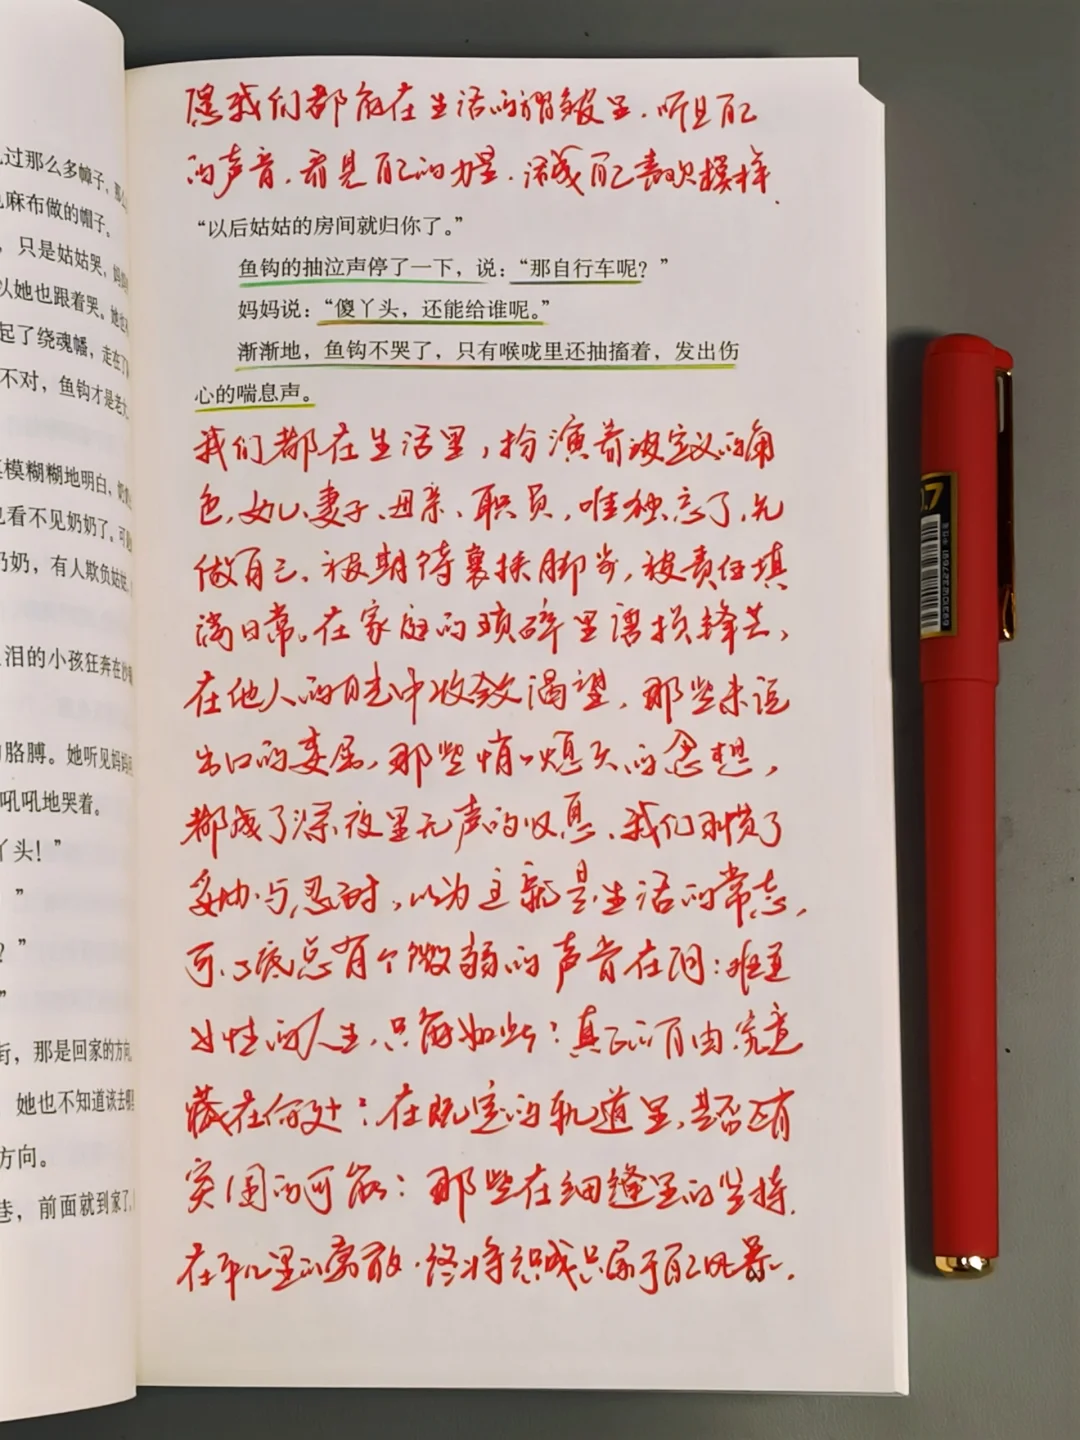 过那么多幛子，那么
麻布做的帽子。
，只是姑姑哭，妈妈
以她也跟着哭。她也
起了绕魂幡，走在了
不对，鱼钩才是老大
模模糊糊地明白，奶奶
也看不见奶奶了。可
奶奶，有人欺负姑姑
泪的小孩狂奔在沙
胳膊。她听见妈妈
吼吼地哭着。
丫头！”
”
？”
”
街，那是回家的方向
她也不知道该去哪
方向。
巷，前面就到家了，
愿我们都能在生活的褶皱里，听见自己
的声音，看见自己的力量，活成自己喜欢模样
“以后姑姑的房间就归你了。”
鱼钩的抽泣声停了一下，说：“那自行车呢？”
妈妈说：“傻丫头，还能给谁呢。”
渐渐地，鱼钩不哭了，只有喉咙里还抽搐着，发出伤
心的喘息声。
我们都在生活里，扮演着被定义的角
色，女儿、妻子、母亲、职员，唯独忘了，先
做自己。被期待裹挟脚步，被责任填
满日常。在家庭的琐碎里磨损锋芒，
在他人的目光中收敛渴望，那些未说
出口的委屈，那些悄悄熄灭的念想，
都成了深夜里无声的叹息。我们习惯了
妥协与忍耐，以为这就是生活的常态，
可心底总有个微弱的声音在问：难道
女性的人生，只能如此？真正的自由，究竟
藏在何处？在既定的轨道里，是否还有
突围的可能？那些在细缝里的坚持，
在平凡里的勇敢，终将织成只属于自己风景。
0.7